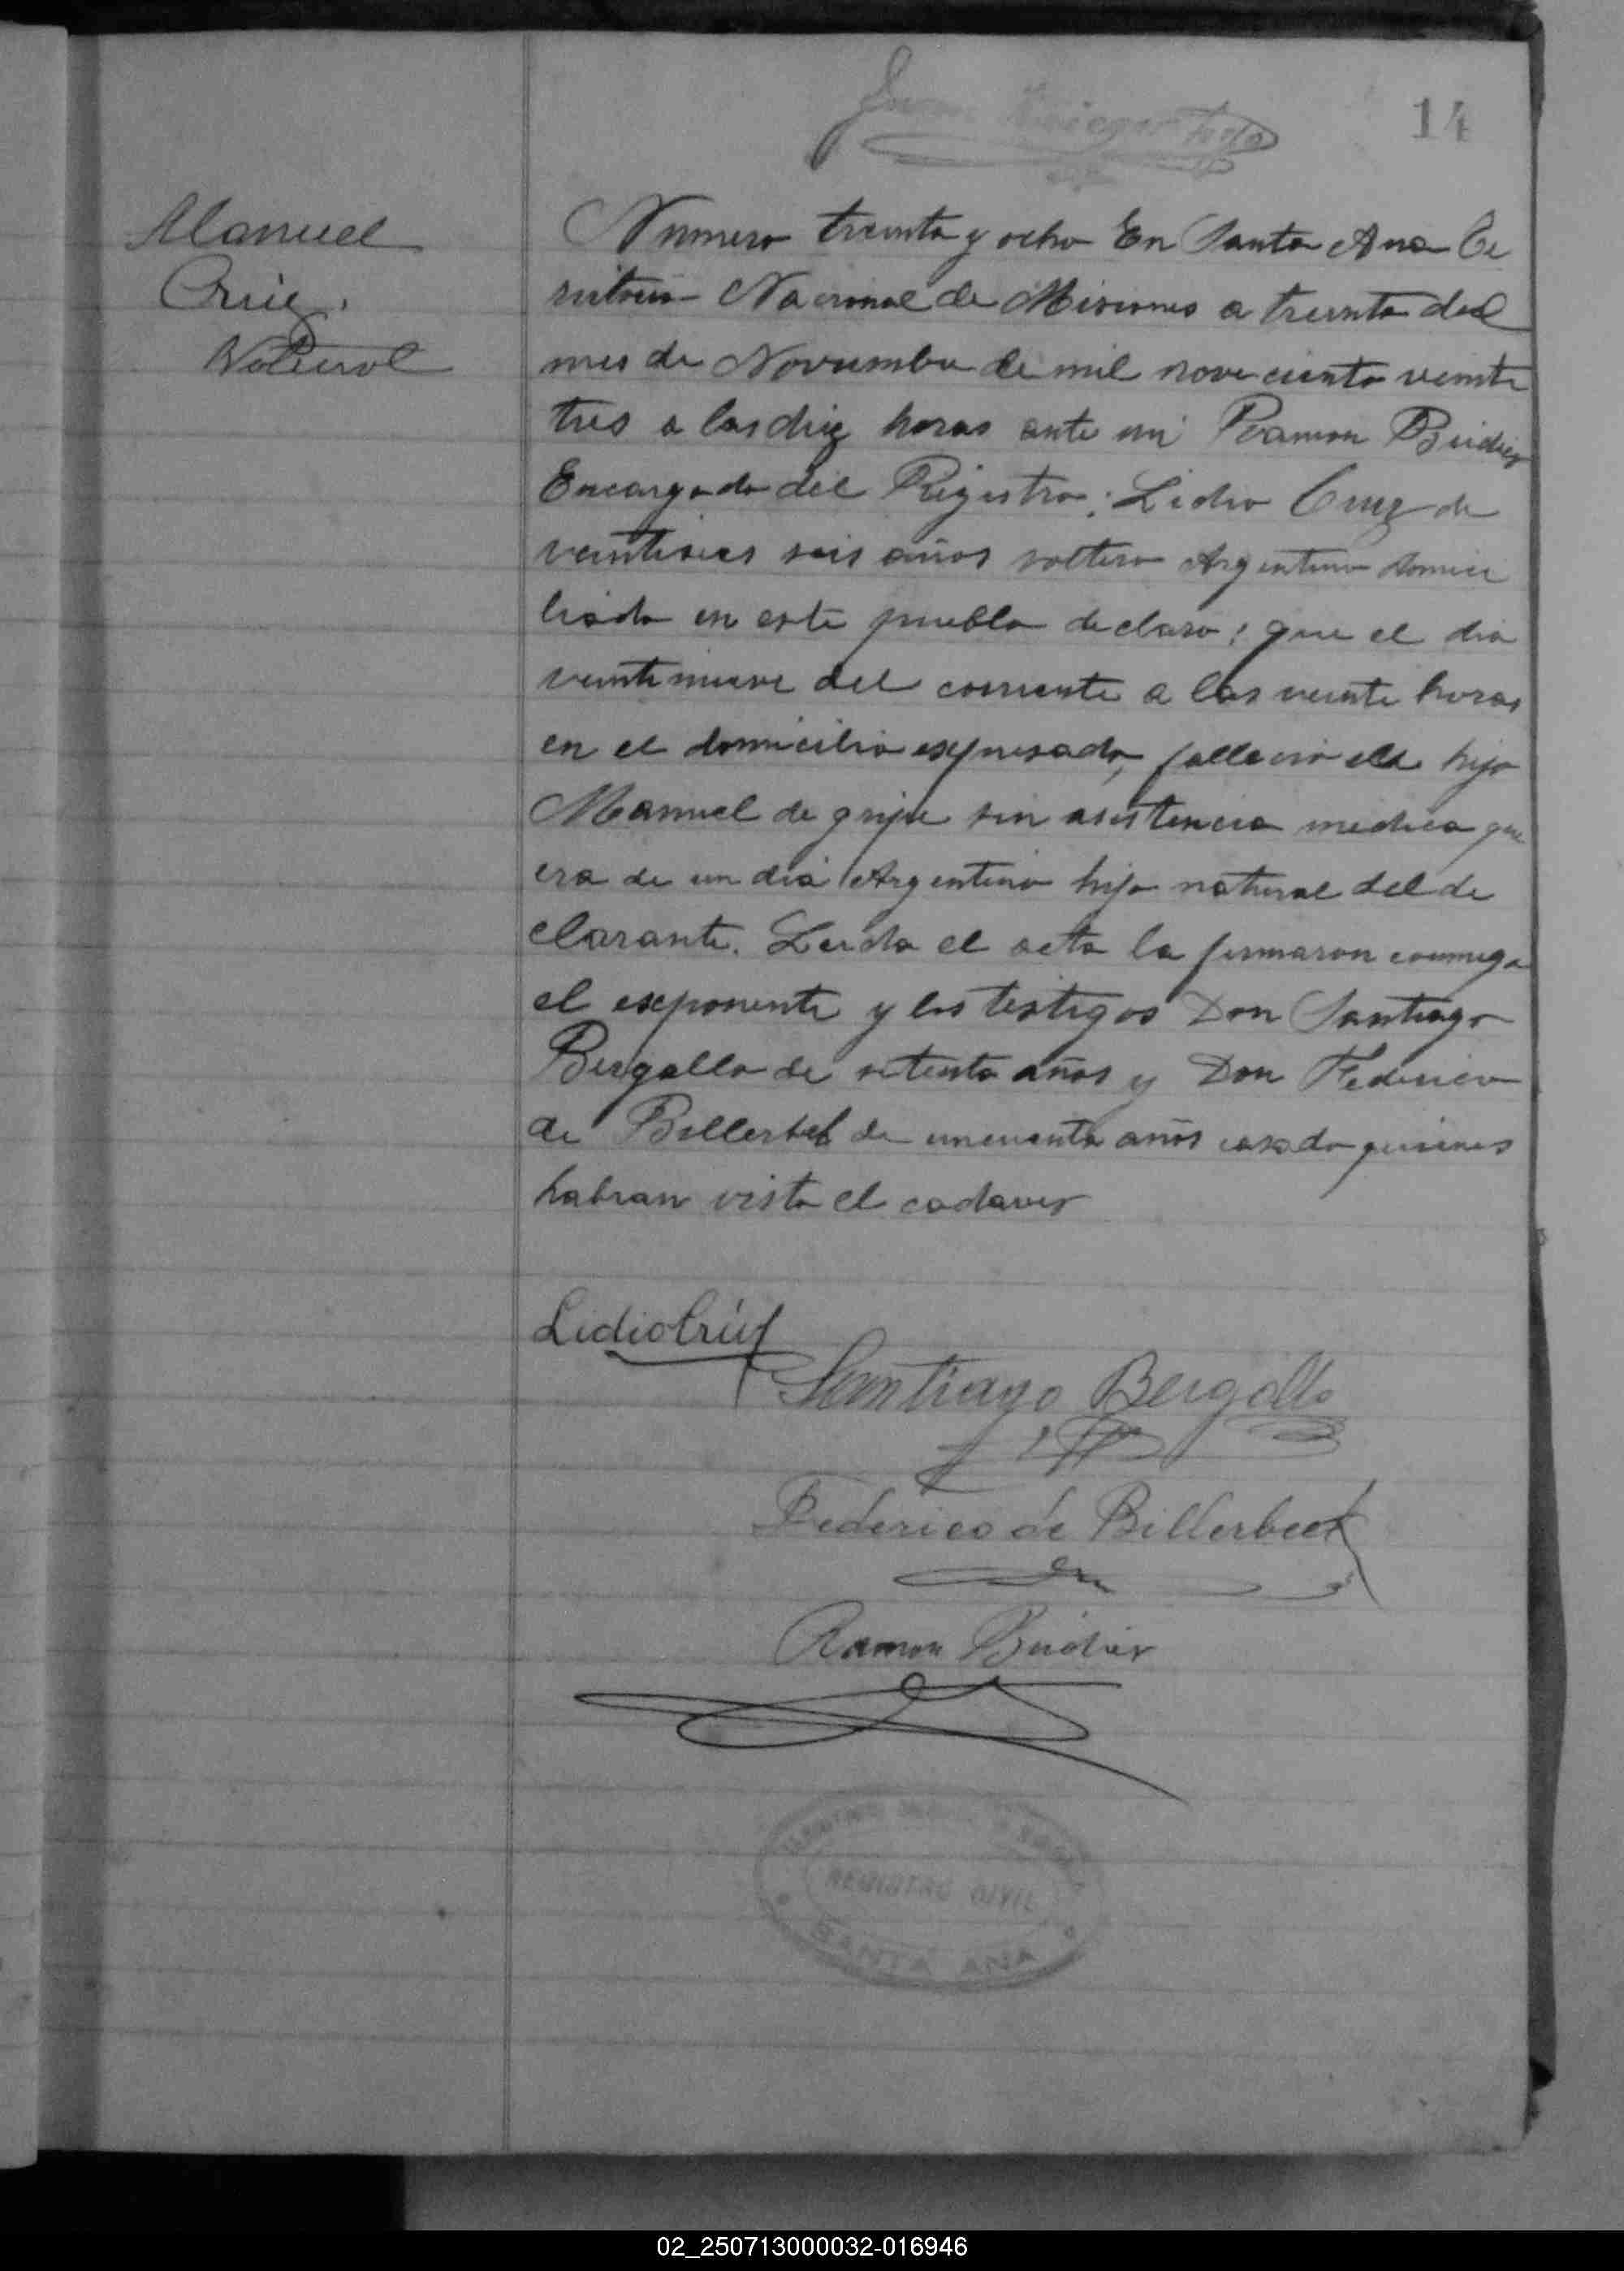 14
Manuel
Cruz.
Natural
Numero treinta y ocho En Santa Ana Te
rritorio Nacional de Misiones a treinta del
mes de Noviembre de mil noveciento veinte
tres a las diez horas ante mi Ramon
Encargado del Registro; Lidio Cruz de
veintiseis seis años soltero Argentino domici
liado en este pueblo declaro; que el dia
veintinueve del corriente a las veinte horas
en el domicilio expresado, fallecio el hijo
Manuel de gripe sin asistencia medica que
era de un dia Argentino hijo natural del de
clarante. Leida el acta la firmaron conmigo
el exponente y los testigos Don Santiago
Bergallo de setenta años y Don Federico
de Billerbek de cincuenta años casado quienes
habran visto el cadaver
Lidio Crúz
Santiago Bergallo
Federico de Billerbeck
Ramon
REGISTRO CIVIL
SANTA ANA
02_250713000032-016946